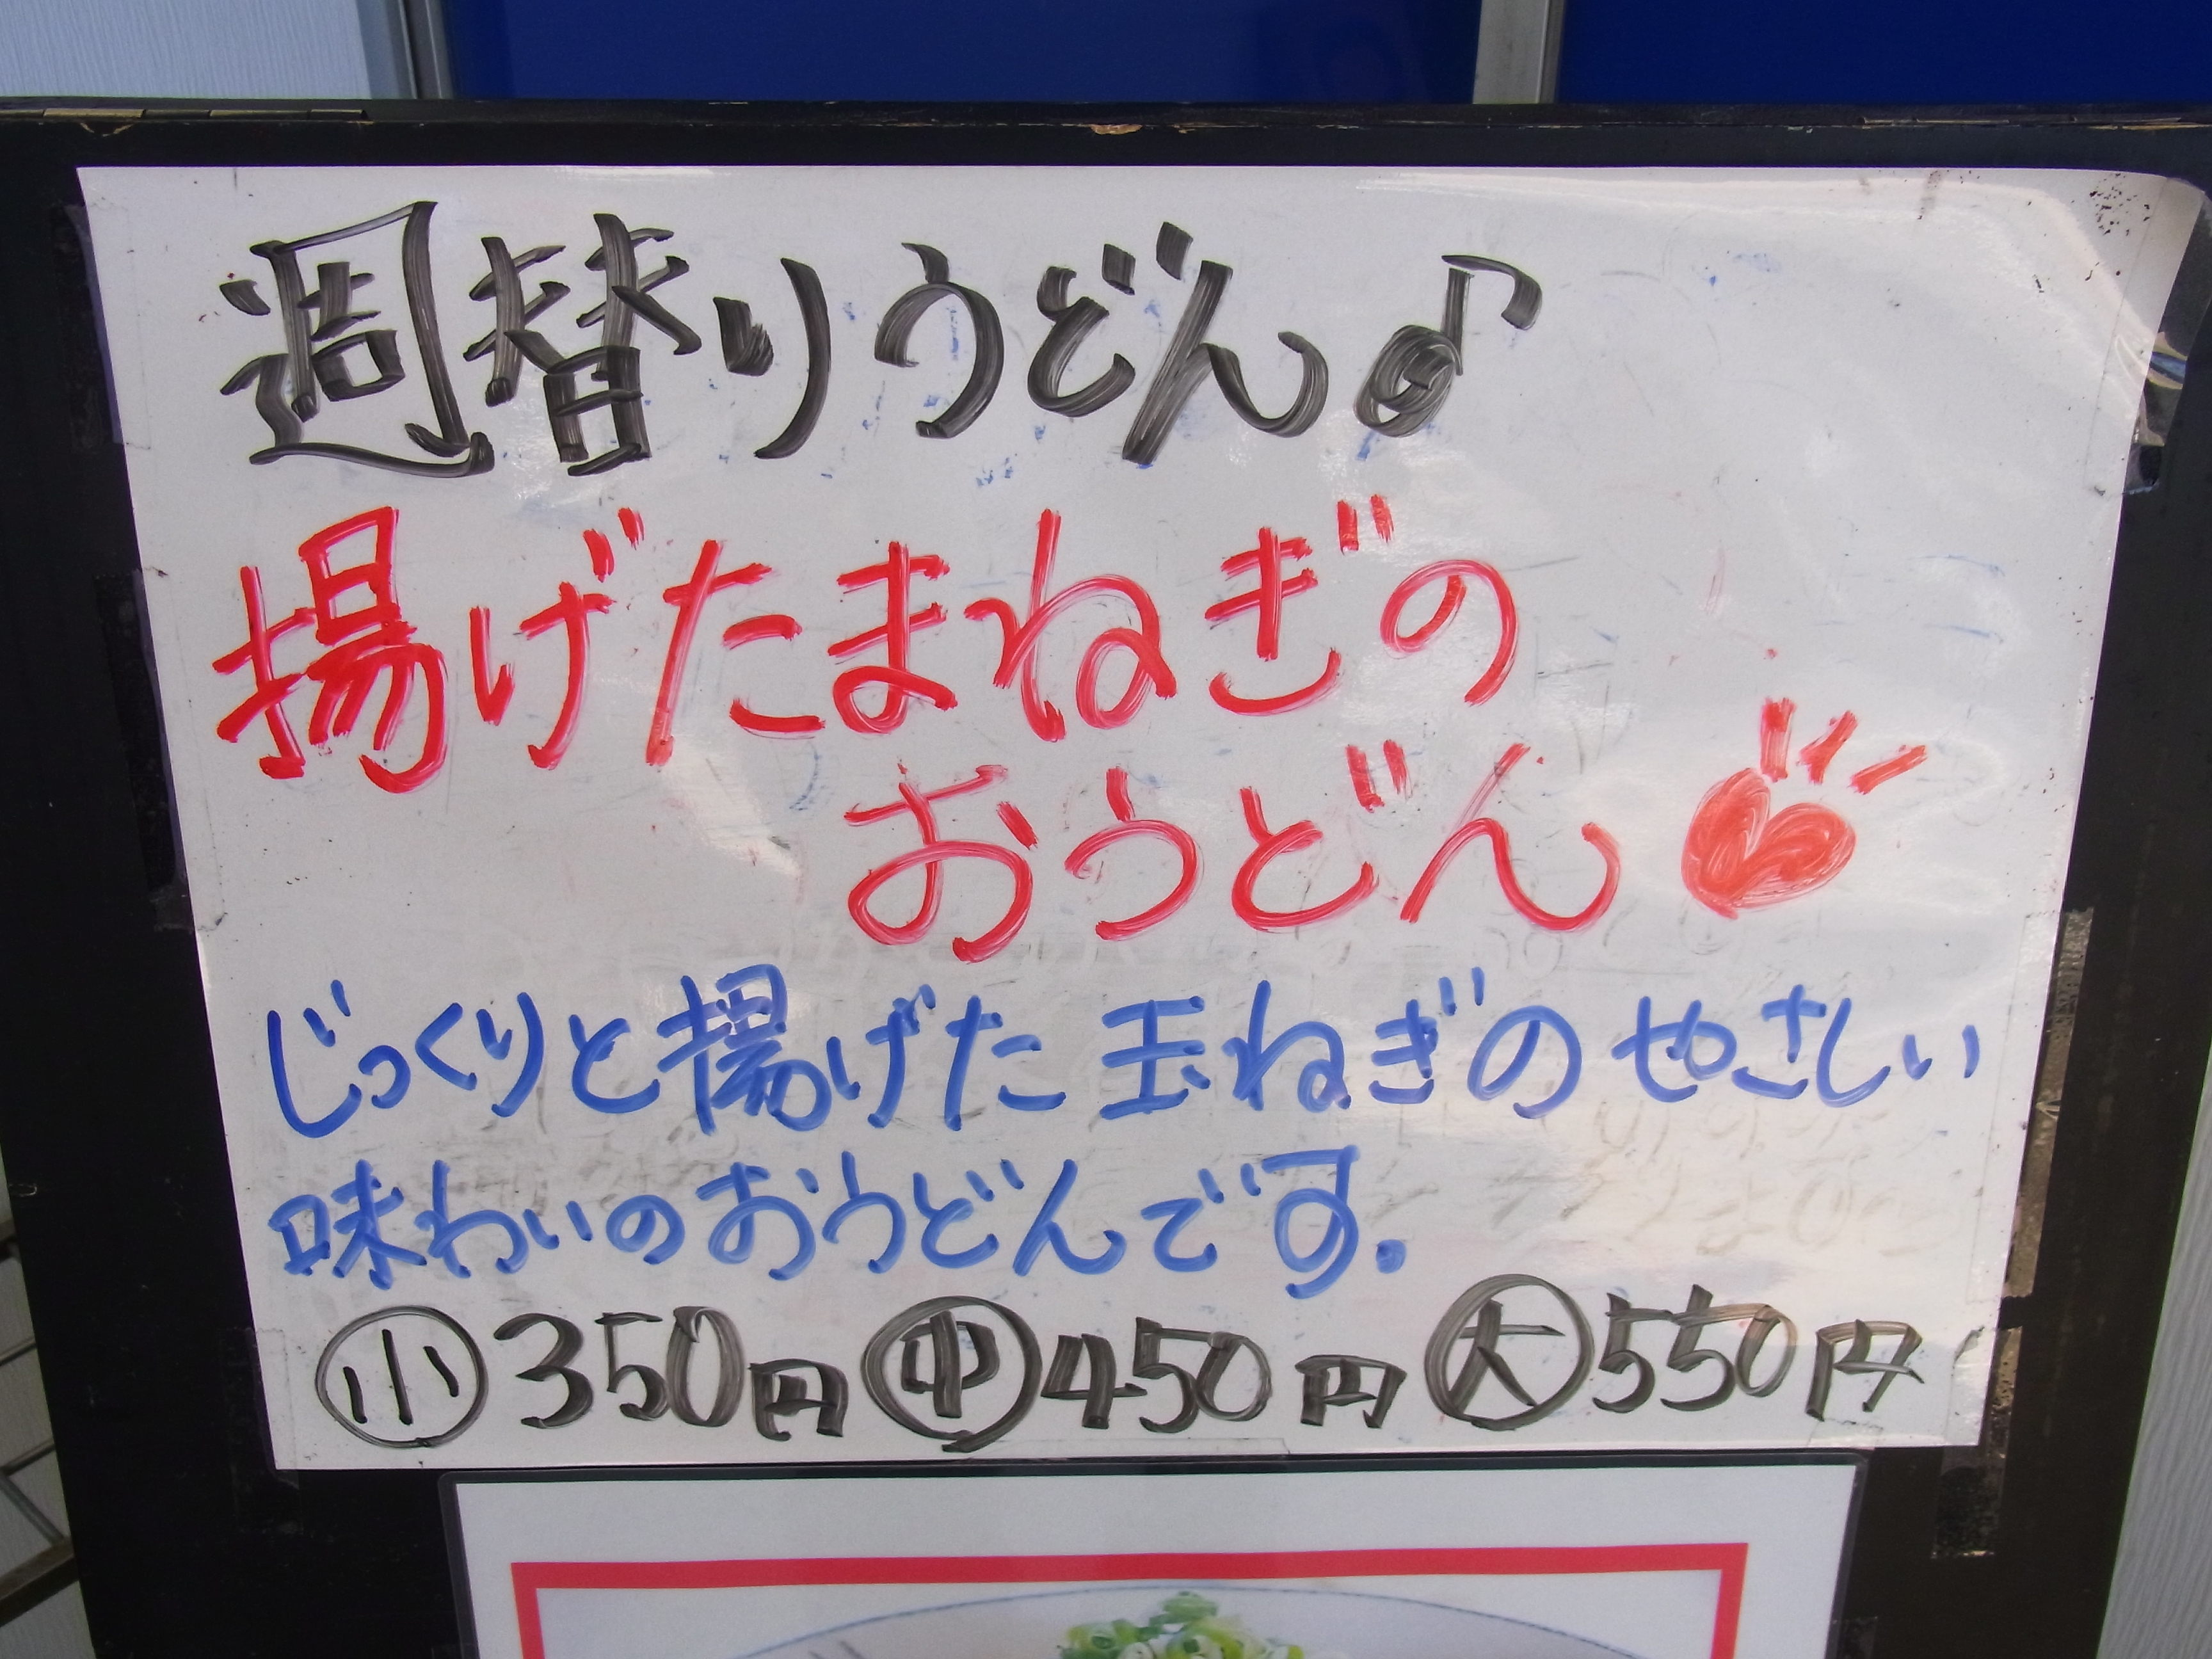 週替りうどん♪
揚げたまねぎの
おうどん
じっくりと揚げた玉ねぎのやさしい
味わいのおうどんです。
㊤小 350円 ㊥ 450円 大 550円